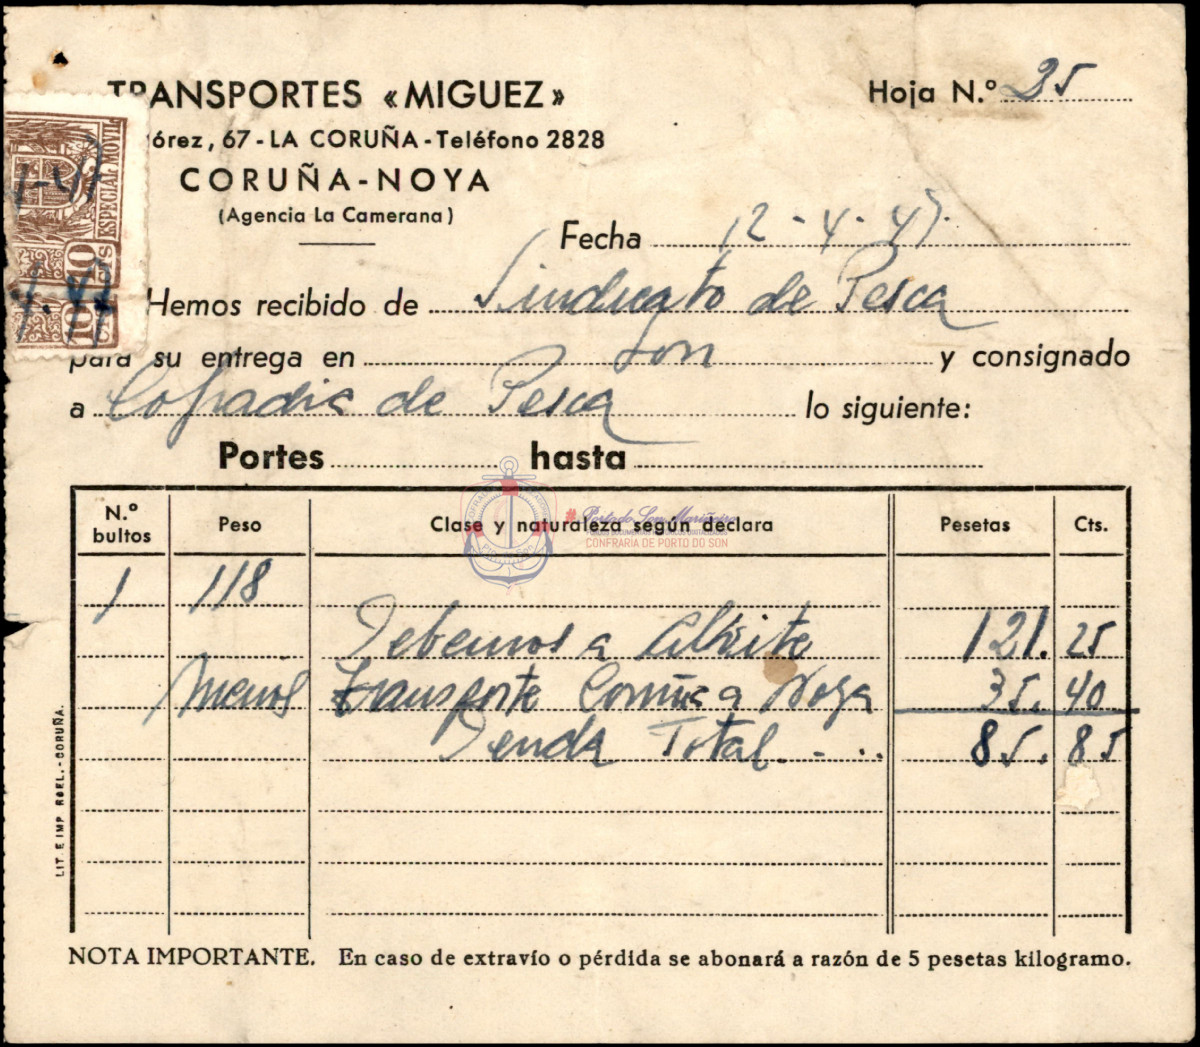 TRANSPORTES «MIGUEZ»
Hoja N.º 35
órez, 67 - LA CORUÑA - Teléfono 2828
CORUÑA - NOYA
(Agencia La Camerana)
Fecha 12 - 4 - 47.
Hemos recibido de Sindicato de Pesca
para su entrega en Son y consignado
a Cofradia de Pesca lo siguiente:
Portes hasta
N.º bultos Peso Clase y naturaleza según declara Pesetas Cts.
1 118
Debemos a 121. 25
Menos transporte Coruña a Noya 35. 40
Total. - .. 85. 85
NOTA IMPORTANTE. En caso de extravío o pérdida se abonará a razón de 5 pesetas kilogramo.
LIT. E IMP. ROEL. - CORUÑA.
ESPECIAL MOVIL
10 CTS
10 CTS
#Porto do Son Mariñeiro
CONFRARIA DE PORTO DO SON